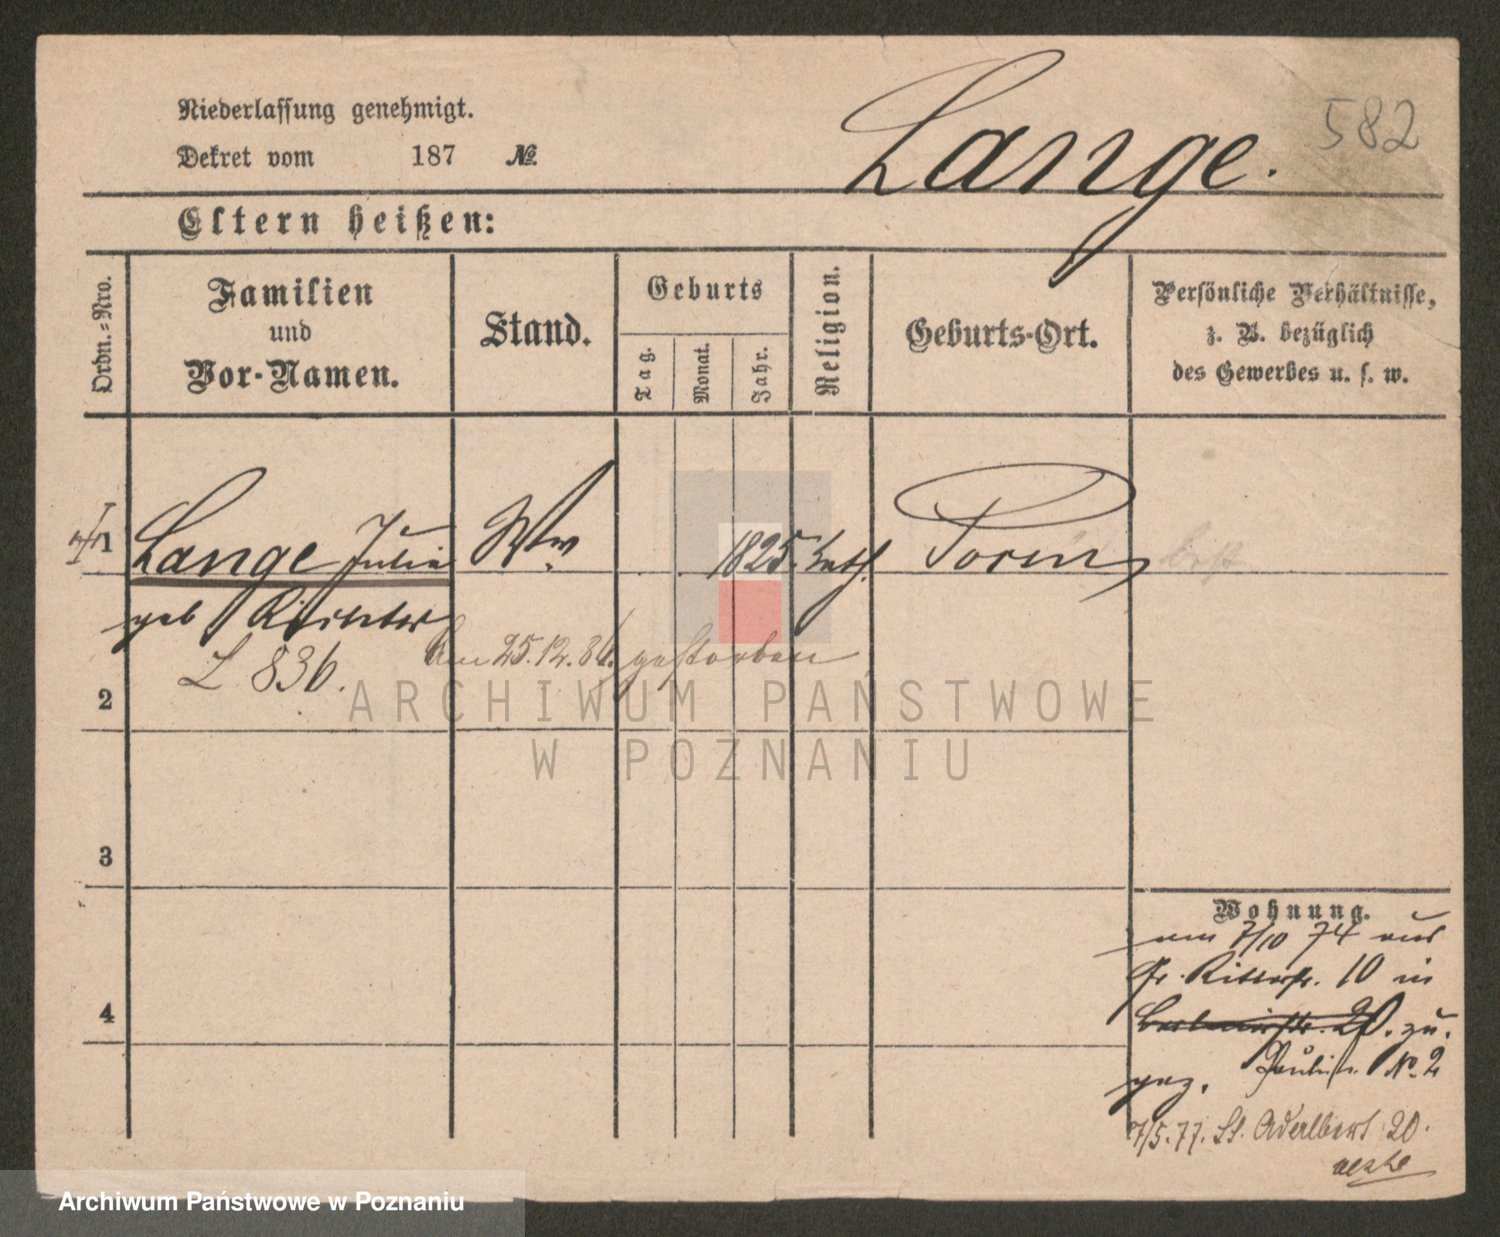 Niederlassung genehmigt.
Dekret vom 187 №
Lange.
582
Eltern heißen:
Ordn.-Nro.
Familien
und
Vor-Namen.
Stand.
Geburts
Tag.
Monat.
Jahr.
Religion.
Geburts-Ort.
Persönliche Verhältnisse,
z. B. bezüglich
des Gewerbes u. s. w.
1 Lange Julia Ww. 1825. kath. Posen
geb Richter
Am 25.12.86. gestorben
L 836.
2
ARCHIWUM PAŃSTWOWE
W POZNANIU
3
4
Wohnung.
am 7/10 74 aus
Gr. Ritterstr. 10 in
20. zu.
gez. Paulin. No. 2
7/5.77. St. Adalbert 20.
Archiwum Państwowe w Poznaniu